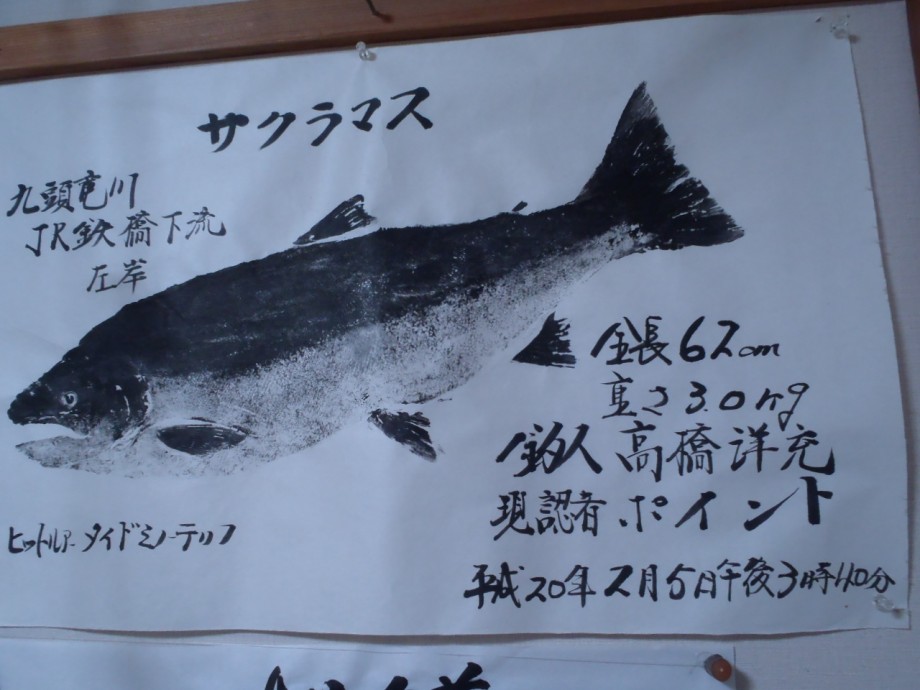 サクラマス
九頭竜川
JR鉄橋下流
左岸
全長62cm
重さ3.0kg
釣人 高橋洋充
現認者 ポイント
ヒットルアー タイドミノーテリフ
平成20年2月5日午後3時40分